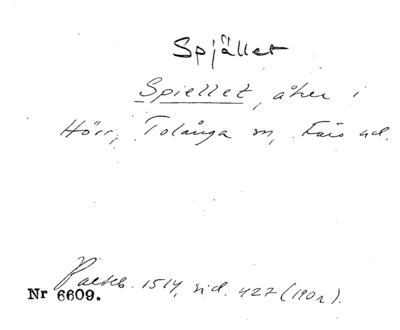 Spjället
Spiellet, åker i
Hörr, Tolånga sn, Färs hd.
Palteb. 1514, sid. 427 (190r).
Nr 6609.